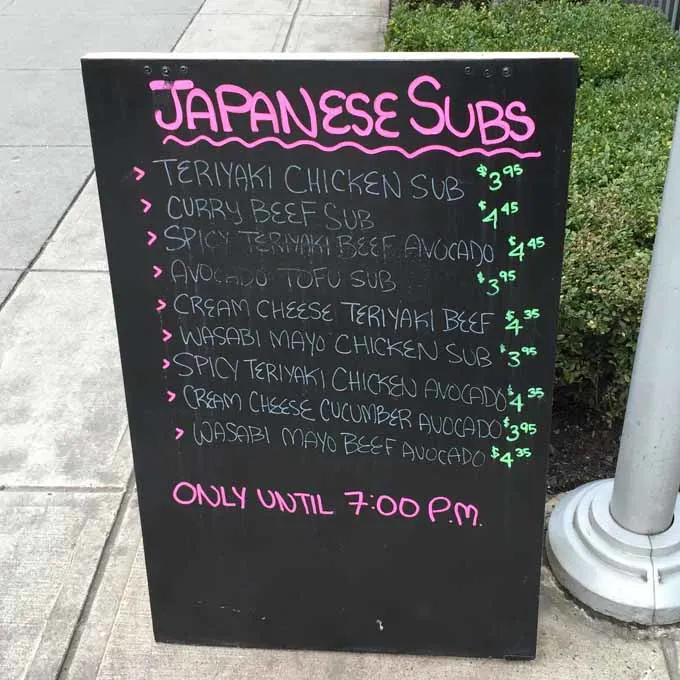 JAPANESE SUBS
> TERIYAKI CHICKEN SUB $3.95
> CURRY BEEF SUB $4.45
> SPICY TERIYAKI BEEF AVOCADO $4.45
> AVOCADO TOFU SUB $3.95
> CREAM CHEESE TERIYAKI BEEF $4.35
> WASABI MAYO CHICKEN SUB $3.95
> SPICY TERIYAKI CHICKEN AVOCADO $4.35
> CREAM CHEESE CUCUMBER AVOCADO $3.95
> WASABI MAYO BEEF AVOCADO $4.35
ONLY UNTIL 7:00 P.M.